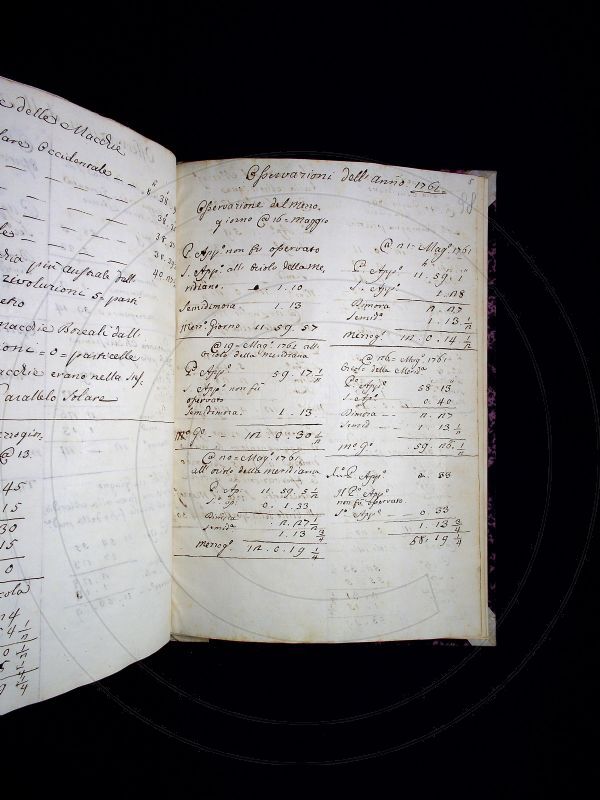 e delle Macchie
lare Occidentale
più Australe dall
rivoluzioni 5 parti
macchie Boreali dall
ioni = 0 = particelle
erano nella su
Parallelo Solare
@ 13
45
15
30
15
0
Osservazioni dell'anno 1761.
5
Osservazione del Mezo
giorno @ 16 = Maggio
P. App.º non fù osservato
S. App.º all' oriolo della Me
ridiana. 0. 1. 10.
Semidimora 1. 13
Mezo. Giorno 11. 59. 57
@ 19 = Mag.º 1761 all
Oriolo della Meridiana
P.º App.º 59. 17 1/2
S. App.º non fù
osservato
Semidimora. 1. 13
Mº Gº 12. 0. 30 1/2
@ 20 = Mag.º 1761
all' oriolo della meridiana
P. Ap. 11. 59. 5 1/2
Sº ap. 0. 1. 33
Dimora 2. 27 1/2
Semidª 1. 13 3/4
Mezog.º 12. 0. 19 1/4
@ 21 = Mag.º 1761
Pº App.º 11. 59. 1
S. App.º 1. 28
Dimora 2. 27
Semidª 1. 13 1/2
Mezog.º 12. 0. 14 1/2
@ 26 = Mag.º 1761
Oriolo della Meridª
Pº App.º 58. 13
S. App.º 0. 40
Dimora 2. 27
Semid 1. 13 1/2
Mº Gº 59. 26. 1/2
App.º 0. 33
Il Pº App.º
non fù osservato
Sº App.º 0. 33
1. 13 3/4
58. 19 1/4